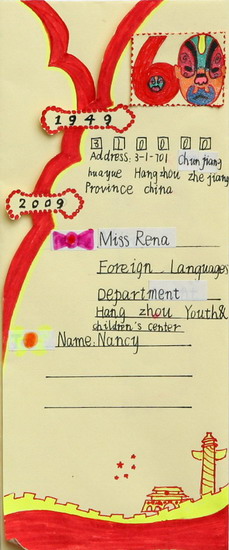 60
1949
310000
Address: 3-1-701 Chunjiang
huayue Hangzhou zhejiang
Province china
2009
Miss Rena
Foreign Languages
Department
Hang zhou Youth&
children's center
Name: Nancy